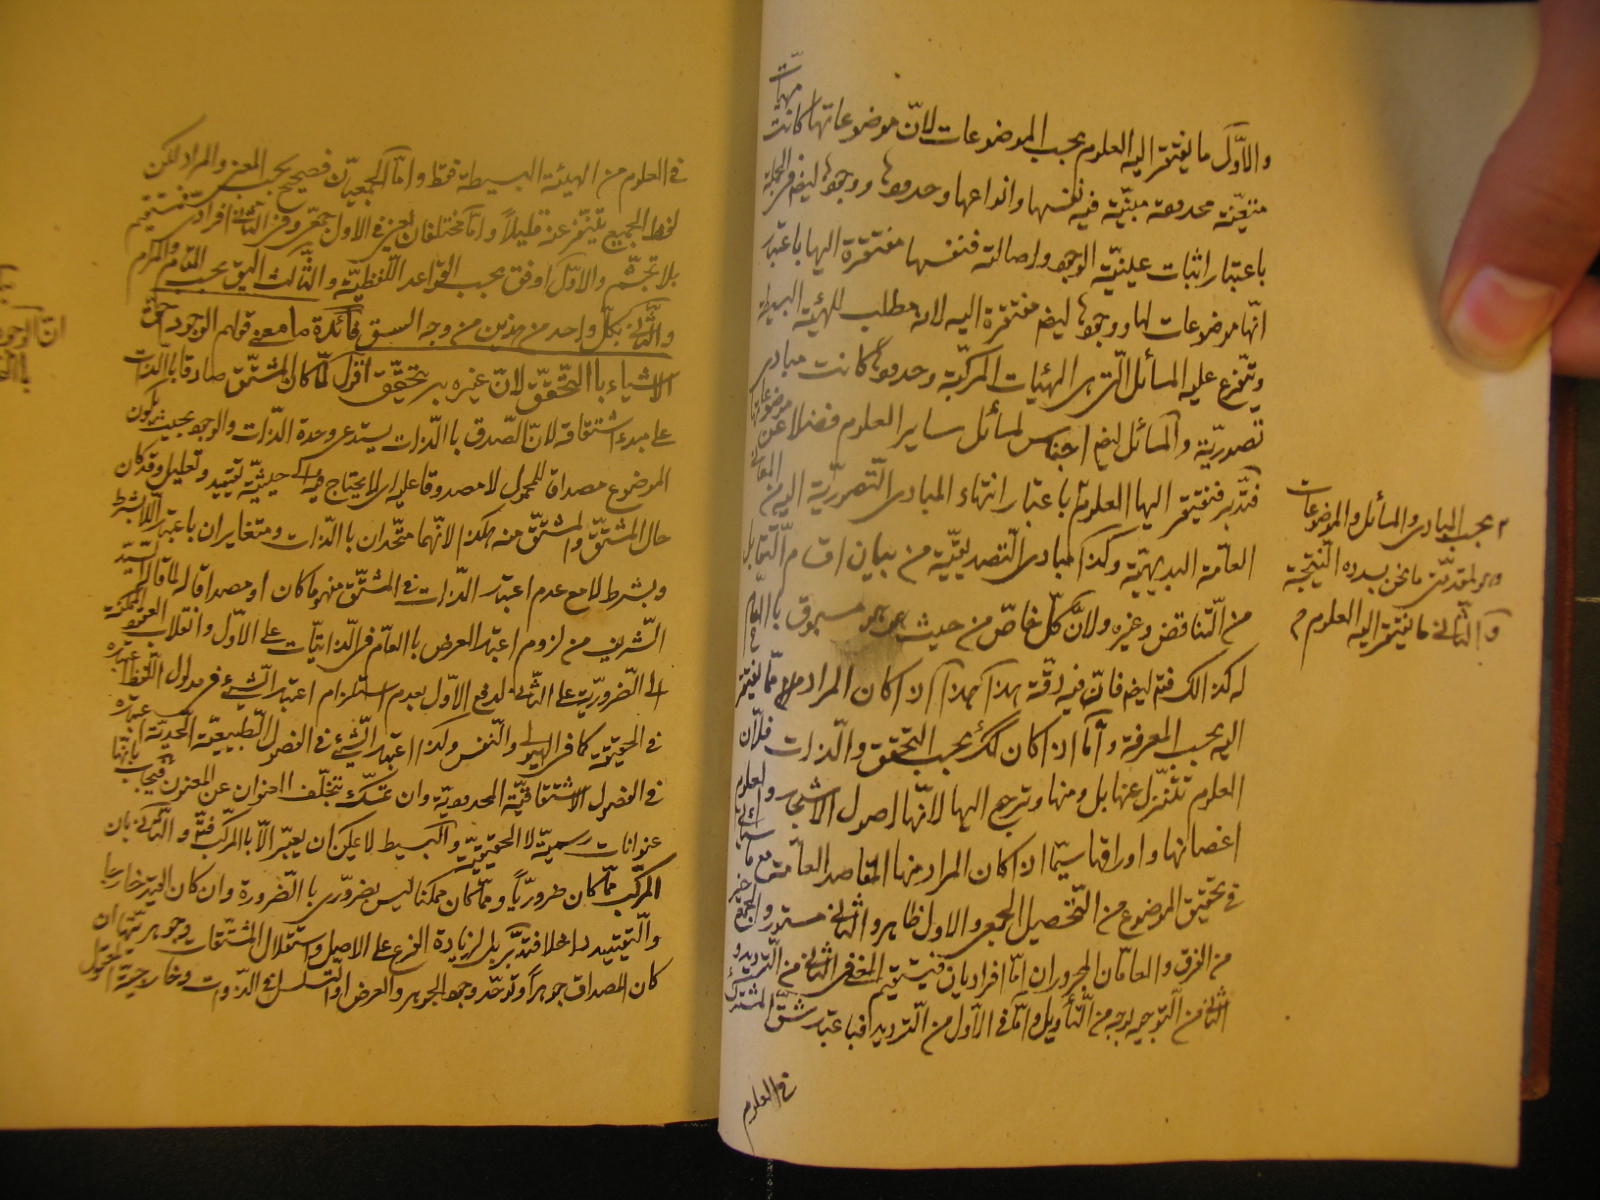 والاوّل ما يفتقر اليه العلوم بحسب الموضوعات لانّ موضوعاتها كانت مهيات
متعيّنة محدودة مبيّنة فيه نفسها وانواعها وحدودها ووجودها ايض في الجملة
باعتبار اثبات الوجود واصالته فنفسها مفتقرة اليها باعتبار
انّها موضوعات لها ووجودها ايض مفتقرة اليه لانه مطلب للهيئة البسيطة
ويتفرع عليه المسائل الّتى هى الهيئات المركبّة وحدودها كانت مبادى
تصوريّة والمسائل ايض اجناس لمسائل ساير العلوم فضلا عن موضوعاتها
فتدبر فتفتقر اليها العلوم باعتبار انتهاء المبادى التصوريّة الى المعانى
العامّة البديهيّة وكذا مبادى التصديقيّة من بيان اقسام التقابل
من التناقض وغيره ولانّ كلّ خاصّ من حيث هو هو مسبوق بالعام
له كذالك فتم ايض فانّ فيه دقّة هذا اذا كان المراد ممّا يفتقر
اليه بحسب المعرفة وامّا اذا كان بحسب التحقق والذات فلانّ
العلوم تتنزل عنها بل ومنها وترجع اليها لانّها اصول الاشجار والعلوم
اغصانها واوراقها سيّما اذا كان المراد منها المقاصد العامّة مع
فى تحقيق الموضوع من التحصيل الجمعى والاول ظاهر والثانى مستور والجمع خير
من الفرق والعامّان المجروران امّا افراديان فيستقيم المعنى فى الثانى من الترديد و
الثانى من التوجيه بوجه من التأويل وامّا فى الاول من الترديد فباعتبار شقّ المشترك
فى العلوم
بحسب المبادى والمسائل والموضوعات
ما نحن بصدده النتيجة
والثّانى ما يفتقر اليه العلوم
فى العلوم من الهيئة البسيطة فقط وامّا الجمعيّان فصحيح بحسب المعنى والمراد لكن
لفظ الجميع يتنفّر عنه قليلاً وامّا مختلفان اعنى فى الاول جمعى وفى الثانى افرادى فيستقيم
بلا تجشّم والاوّل اوفق بحسب القواعد اللّفظيّة والثّالث اليق بحسب المقام والمرام
والثّانى بكلّ واحد من هذين من وجه السبق فائدة ما معنى قولهم الوجود احقّ
الاشياء باالتّحقّق لانّ غيره به يتحقّق اقول لمّا كان المشتقّ صادقا باالذات
على مبدء اشتقاقه لانّ الصّدق باالذات يستدعى وحدة الذات والوجود بحيث يكون
الموضوع مصداقا للمحمول لا مصدوقا عليه اى لا يحتاج فيه الى حيثيّة تقييد وتعليل وقد كان
حال المشتقّ والمشتقّ منه هكذا لانّهما متّحدان باالذات ومتغايران باعتبار اللّابشرط
وبشرط لا مع عدم اعتبار الذات فى المشتقّ مفهوما كان او مصداقا له لما قال السيّد
الشريف من لزوم اعتبار العرض باالعام فى الذاتيّات على الاوّل وانقلاب القضية الممكنة
الى الضّروريّة على الثّانى لدفع الاوّل بعدم استلزام اعتبار الشّئ فى مدلول اللّفظ اعتباره
فى الحقيقة كما فى الهيولى والنفس وكذا اعتبار الشّئ فى الفصول الطبيعيّة الحديّة عبارة
فى الفصول الاشتقاقيّة المحدوديّة وان تمسّك بتخلّف العنوان عن المعنون فيجاب بانّها
عنوانات رسميّة لا الحقيقيّة والبسيط لا يمكن ان يعبّر الّا باالمركّب فتمّ والثّانى بان
المركّب ممّا كان ضروريّاً وممّا كان ممكنا ليس بضرورى باالضّرورة وان كان القيد خارجا
والتّقييد داخلا فتدبّر بل لزيادة الفرع على الاصل واستقلال المشتقّات وجوهريّتها ان
كان المصداق جوهراً وتوحّد وجود الجوهر والعرض اوالتّسلسل فى الذّوات وخارجيّة المعقول